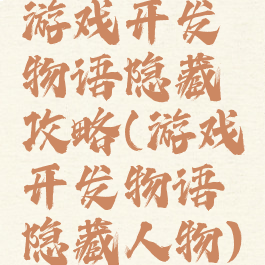 游戏开发
物语隐藏
攻略(游戏
开发物语
隐藏人物)